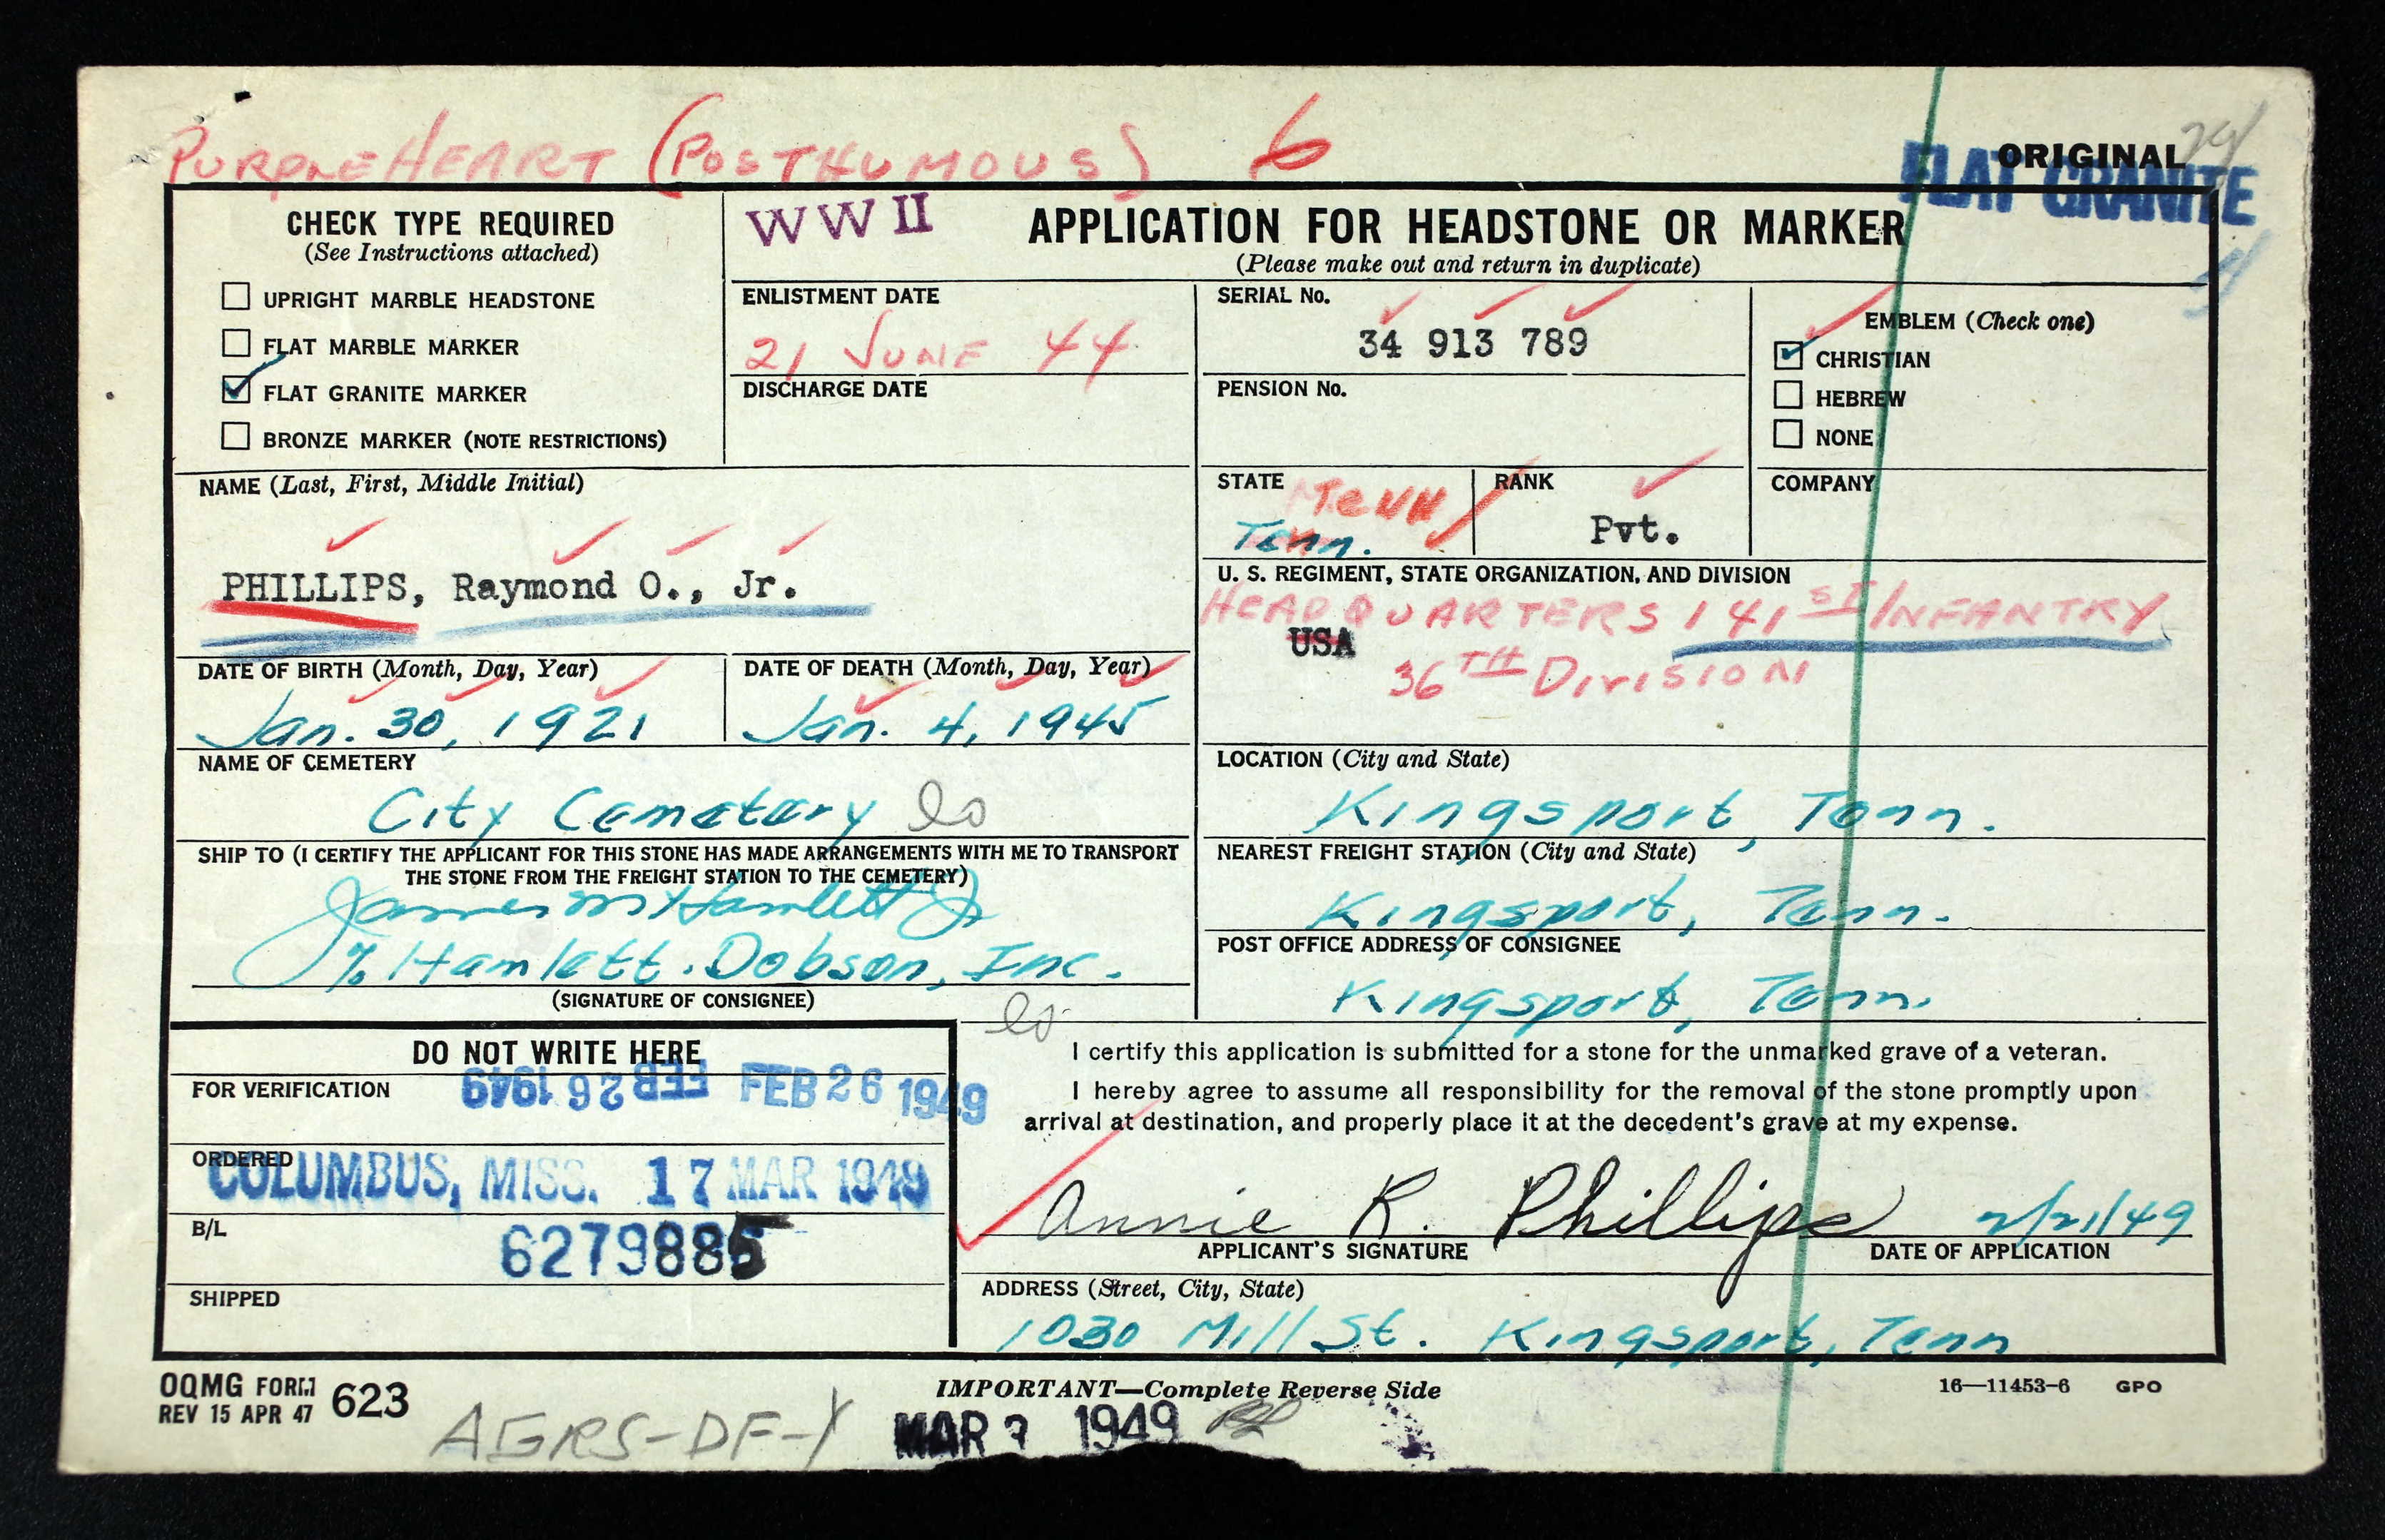 PURPLE HEART (POSTHUMOUS) 6
ORIGINAL
FLAT GRANITE
CHECK TYPE REQUIRED
(See Instructions attached)
UPRIGHT MARBLE HEADSTONE
FLAT MARBLE MARKER
FLAT GRANITE MARKER
BRONZE MARKER (NOTE RESTRICTIONS)
WW II
APPLICATION FOR HEADSTONE OR MARKER
(Please make out and return in duplicate)
ENLISTMENT DATE
21 JUNE 44
DISCHARGE DATE
SERIAL No.
34 913 789
PENSION No.
EMBLEM (Check one)
CHRISTIAN
HEBREW
NONE
NAME (Last, First, Middle Initial)
PHILLIPS, Raymond O., Jr.
STATE
Tenn
Tenn.
RANK
Pvt.
COMPANY
U. S. REGIMENT, STATE ORGANIZATION, AND DIVISION
HEADQUARTERS 141ST INFANTRY
USA
36TH DIVISION
DATE OF BIRTH (Month, Day, Year)
Jan. 30, 1921
DATE OF DEATH (Month, Day, Year)
Jan. 4, 1945
NAME OF CEMETERY
City Cemetary
LOCATION (City and State)
Kingsport, Tenn.
SHIP TO (I CERTIFY THE APPLICANT FOR THIS STONE HAS MADE ARRANGEMENTS WITH ME TO TRANSPORT
THE STONE FROM THE FREIGHT STATION TO THE CEMETERY)
James M Hamlett Jr
% Hamlett-Dobson, Inc.
(SIGNATURE OF CONSIGNEE)
NEAREST FREIGHT STATION (City and State)
Kingsport, Tenn.
POST OFFICE ADDRESS OF CONSIGNEE
Kingsport, Tenn.
DO NOT WRITE HERE
FOR VERIFICATION
FEB 26 1949 FEB 26 1949
ORDERED
COLUMBUS, MISS. 17 MAR 1949
B/L
6279885
SHIPPED
I certify this application is submitted for a stone for the unmarked grave of a veteran.
I hereby agree to assume all responsibility for the removal of the stone promptly upon
arrival at destination, and properly place it at the decedent's grave at my expense.
Annie R. Phillips 2/21/49
APPLICANT'S SIGNATURE
DATE OF APPLICATION
ADDRESS (Street, City, State)
1030 Mill St. Kingsport, Tenn
OQMG FORM 623
REV 15 APR 47
IMPORTANT—Complete Reverse Side
16—11453-6 GPO
AGRS-DF-Y
MAR 1949